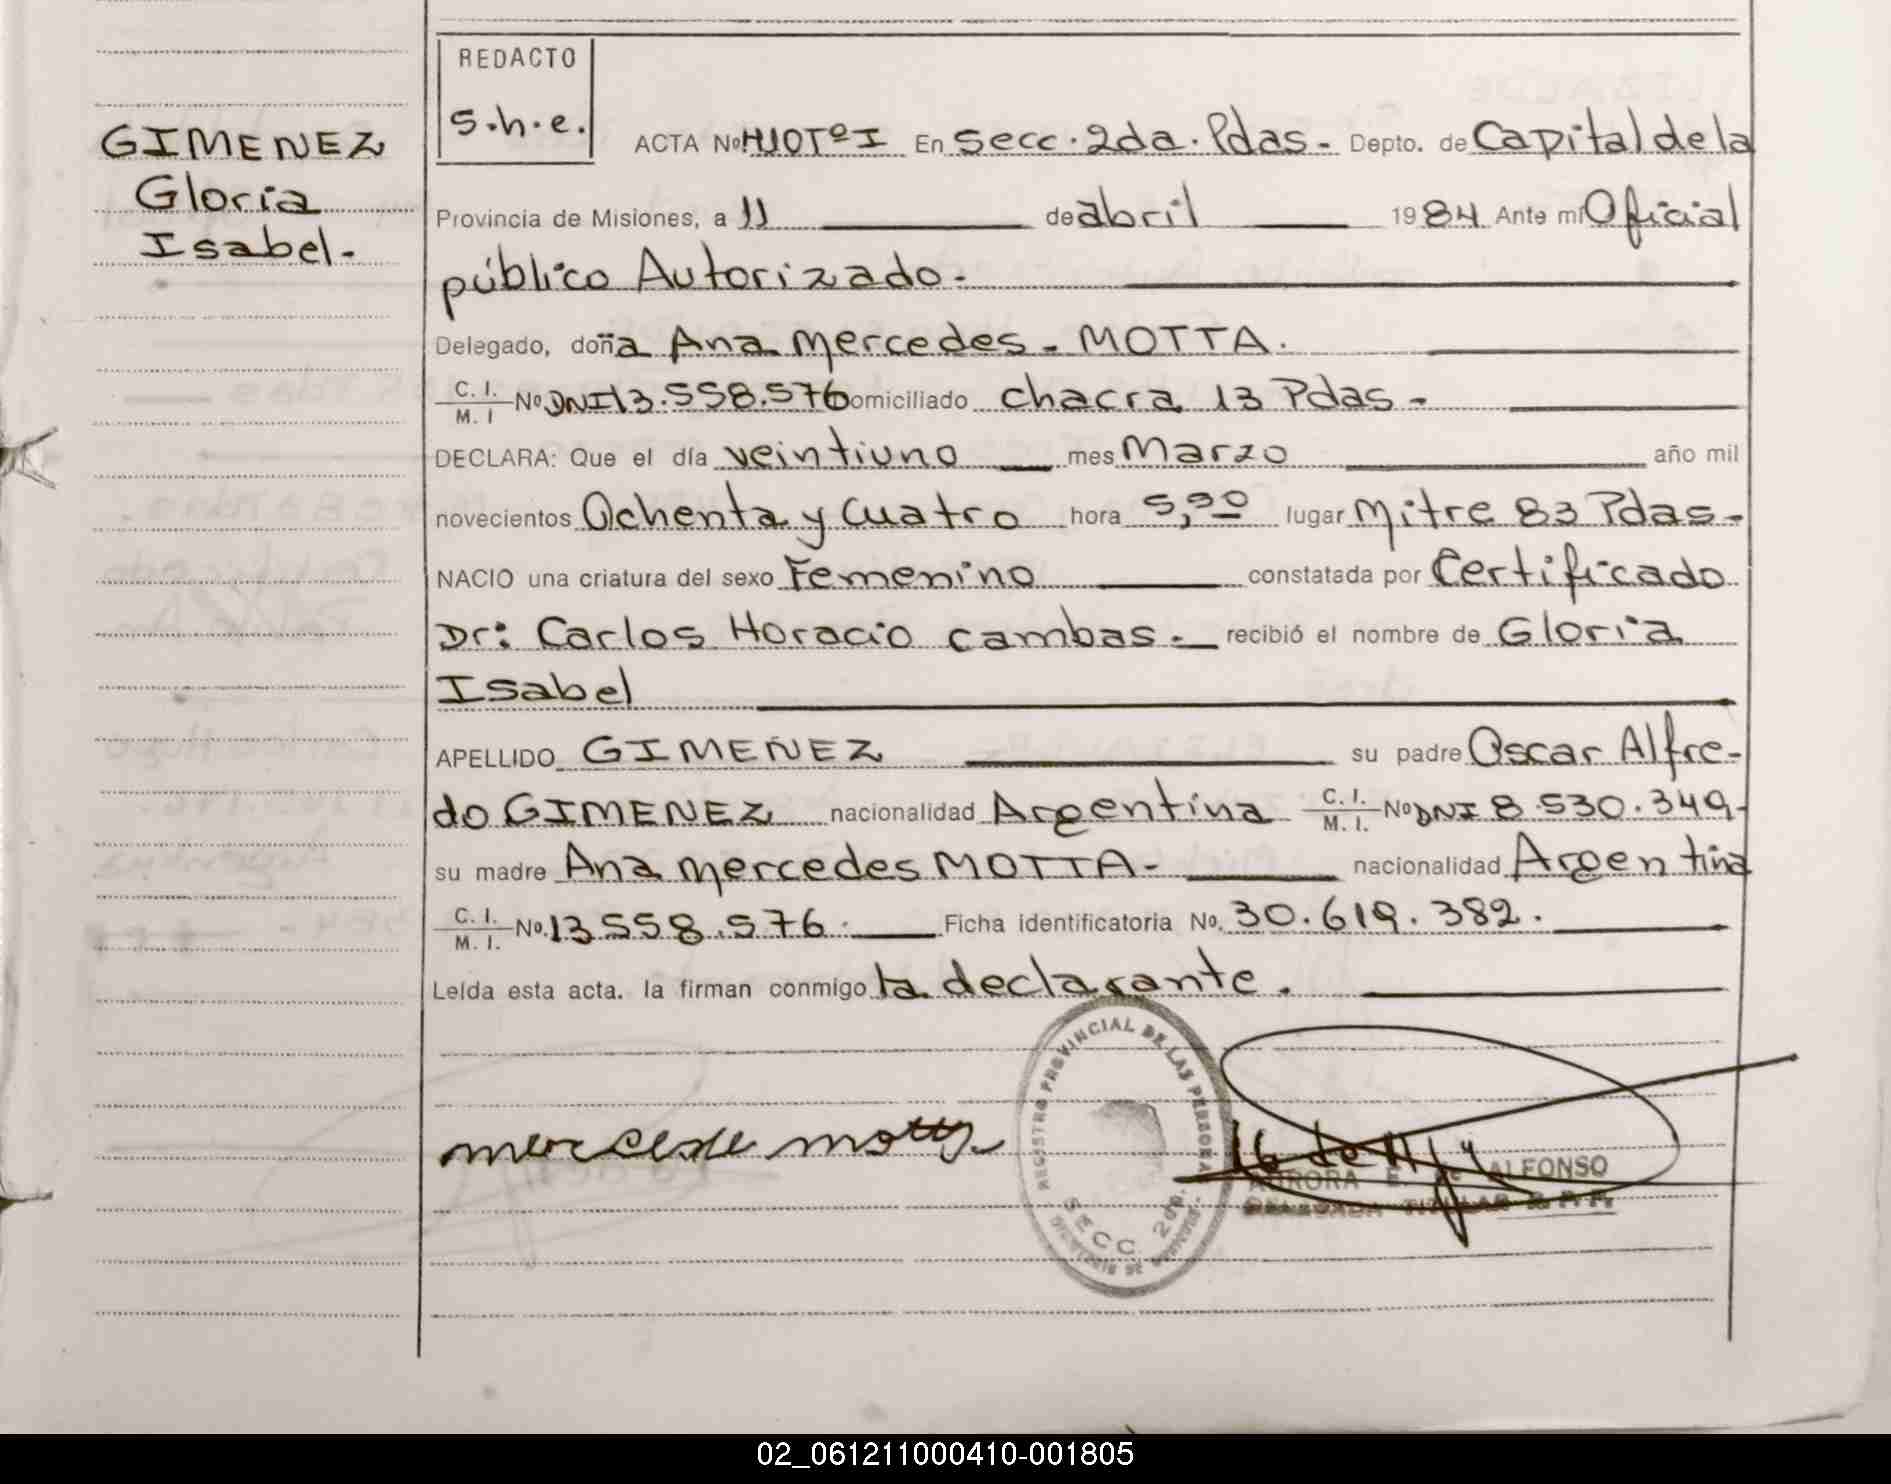 REDACTO
S.h.e.
GIMENEZ
Gloria
Isabel.-
ACTA Nº 410 Tº I En Secc. 2da. Pdas.- Depto. de Capital de la
Provincia de Misiones, a 11 de abril 1984 Ante mí Oficial
público Autorizado.-
Delegado, doña Ana Mercedes - MOTTA.
C. I. / M. I Nº DNI 13.558.576 Domiciliado chacra 13 Pdas -
DECLARA: Que el día veintiuno mes Marzo año mil
novecientos Ochenta y Cuatro hora 5,30 lugar Mitre 83 Pdas-
NACIO una criatura del sexo Femenino constatada por Certificado
Dr: Carlos Horacio Cambas.- recibió el nombre de Gloria
Isabel
APELLIDO GIMENEZ su padre Oscar Alfre-
do GIMENEZ nacionalidad Argentina C. I. / M. I. Nº DNI 8.530.349-
su madre Ana Mercedes MOTTA- nacionalidad Argentina
C. I. / M. I. Nº. 13558.576. Ficha identificatoria Nº. 30.619.382.
Leída esta acta. la firman conmigo la declarante.
REGISTRO PROVINCIAL DE LAS PERSONAS
SECC. 2da.
mercede motta
AURORA E. de ALFONSO
DELEGADA TITULAR R. P. P.
02_061211000410-001805